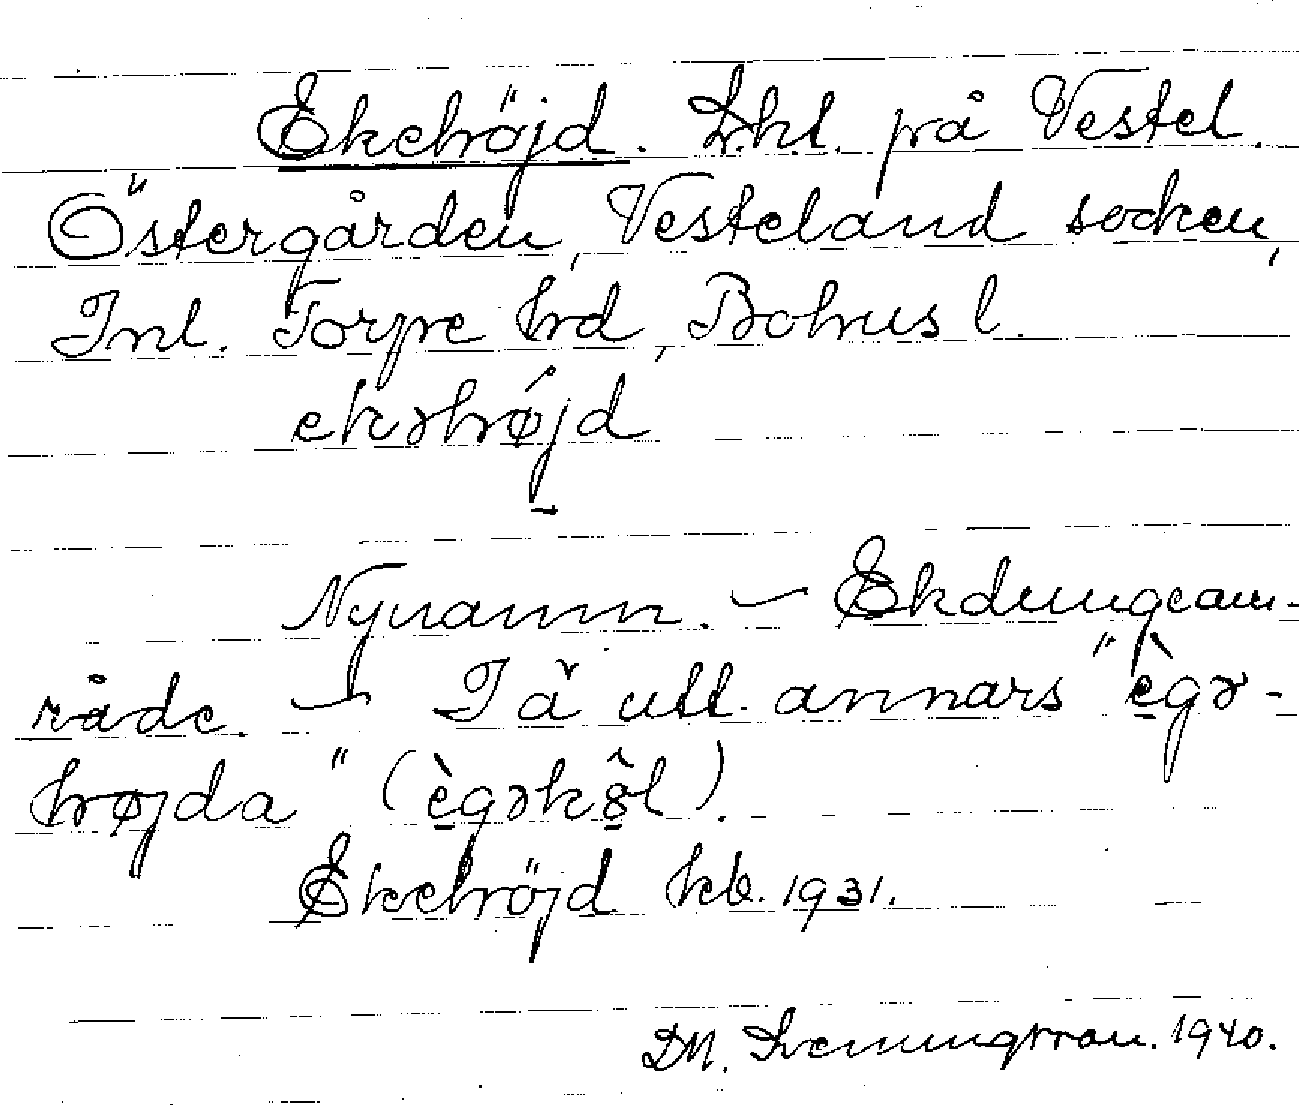 Ekehöjd. Lht. på Vestel.
Östergården, Vesteland socken,
Inl. Torpe hrd, Bohus l.
ekəhøjd
Nynamn. — Ekdungeom-
råde. — I ä utt. annars "ègə-
højda" (ègəkô̤l).
Ekehöjd kb. 1931.
DM. Sveningsson. 1940.